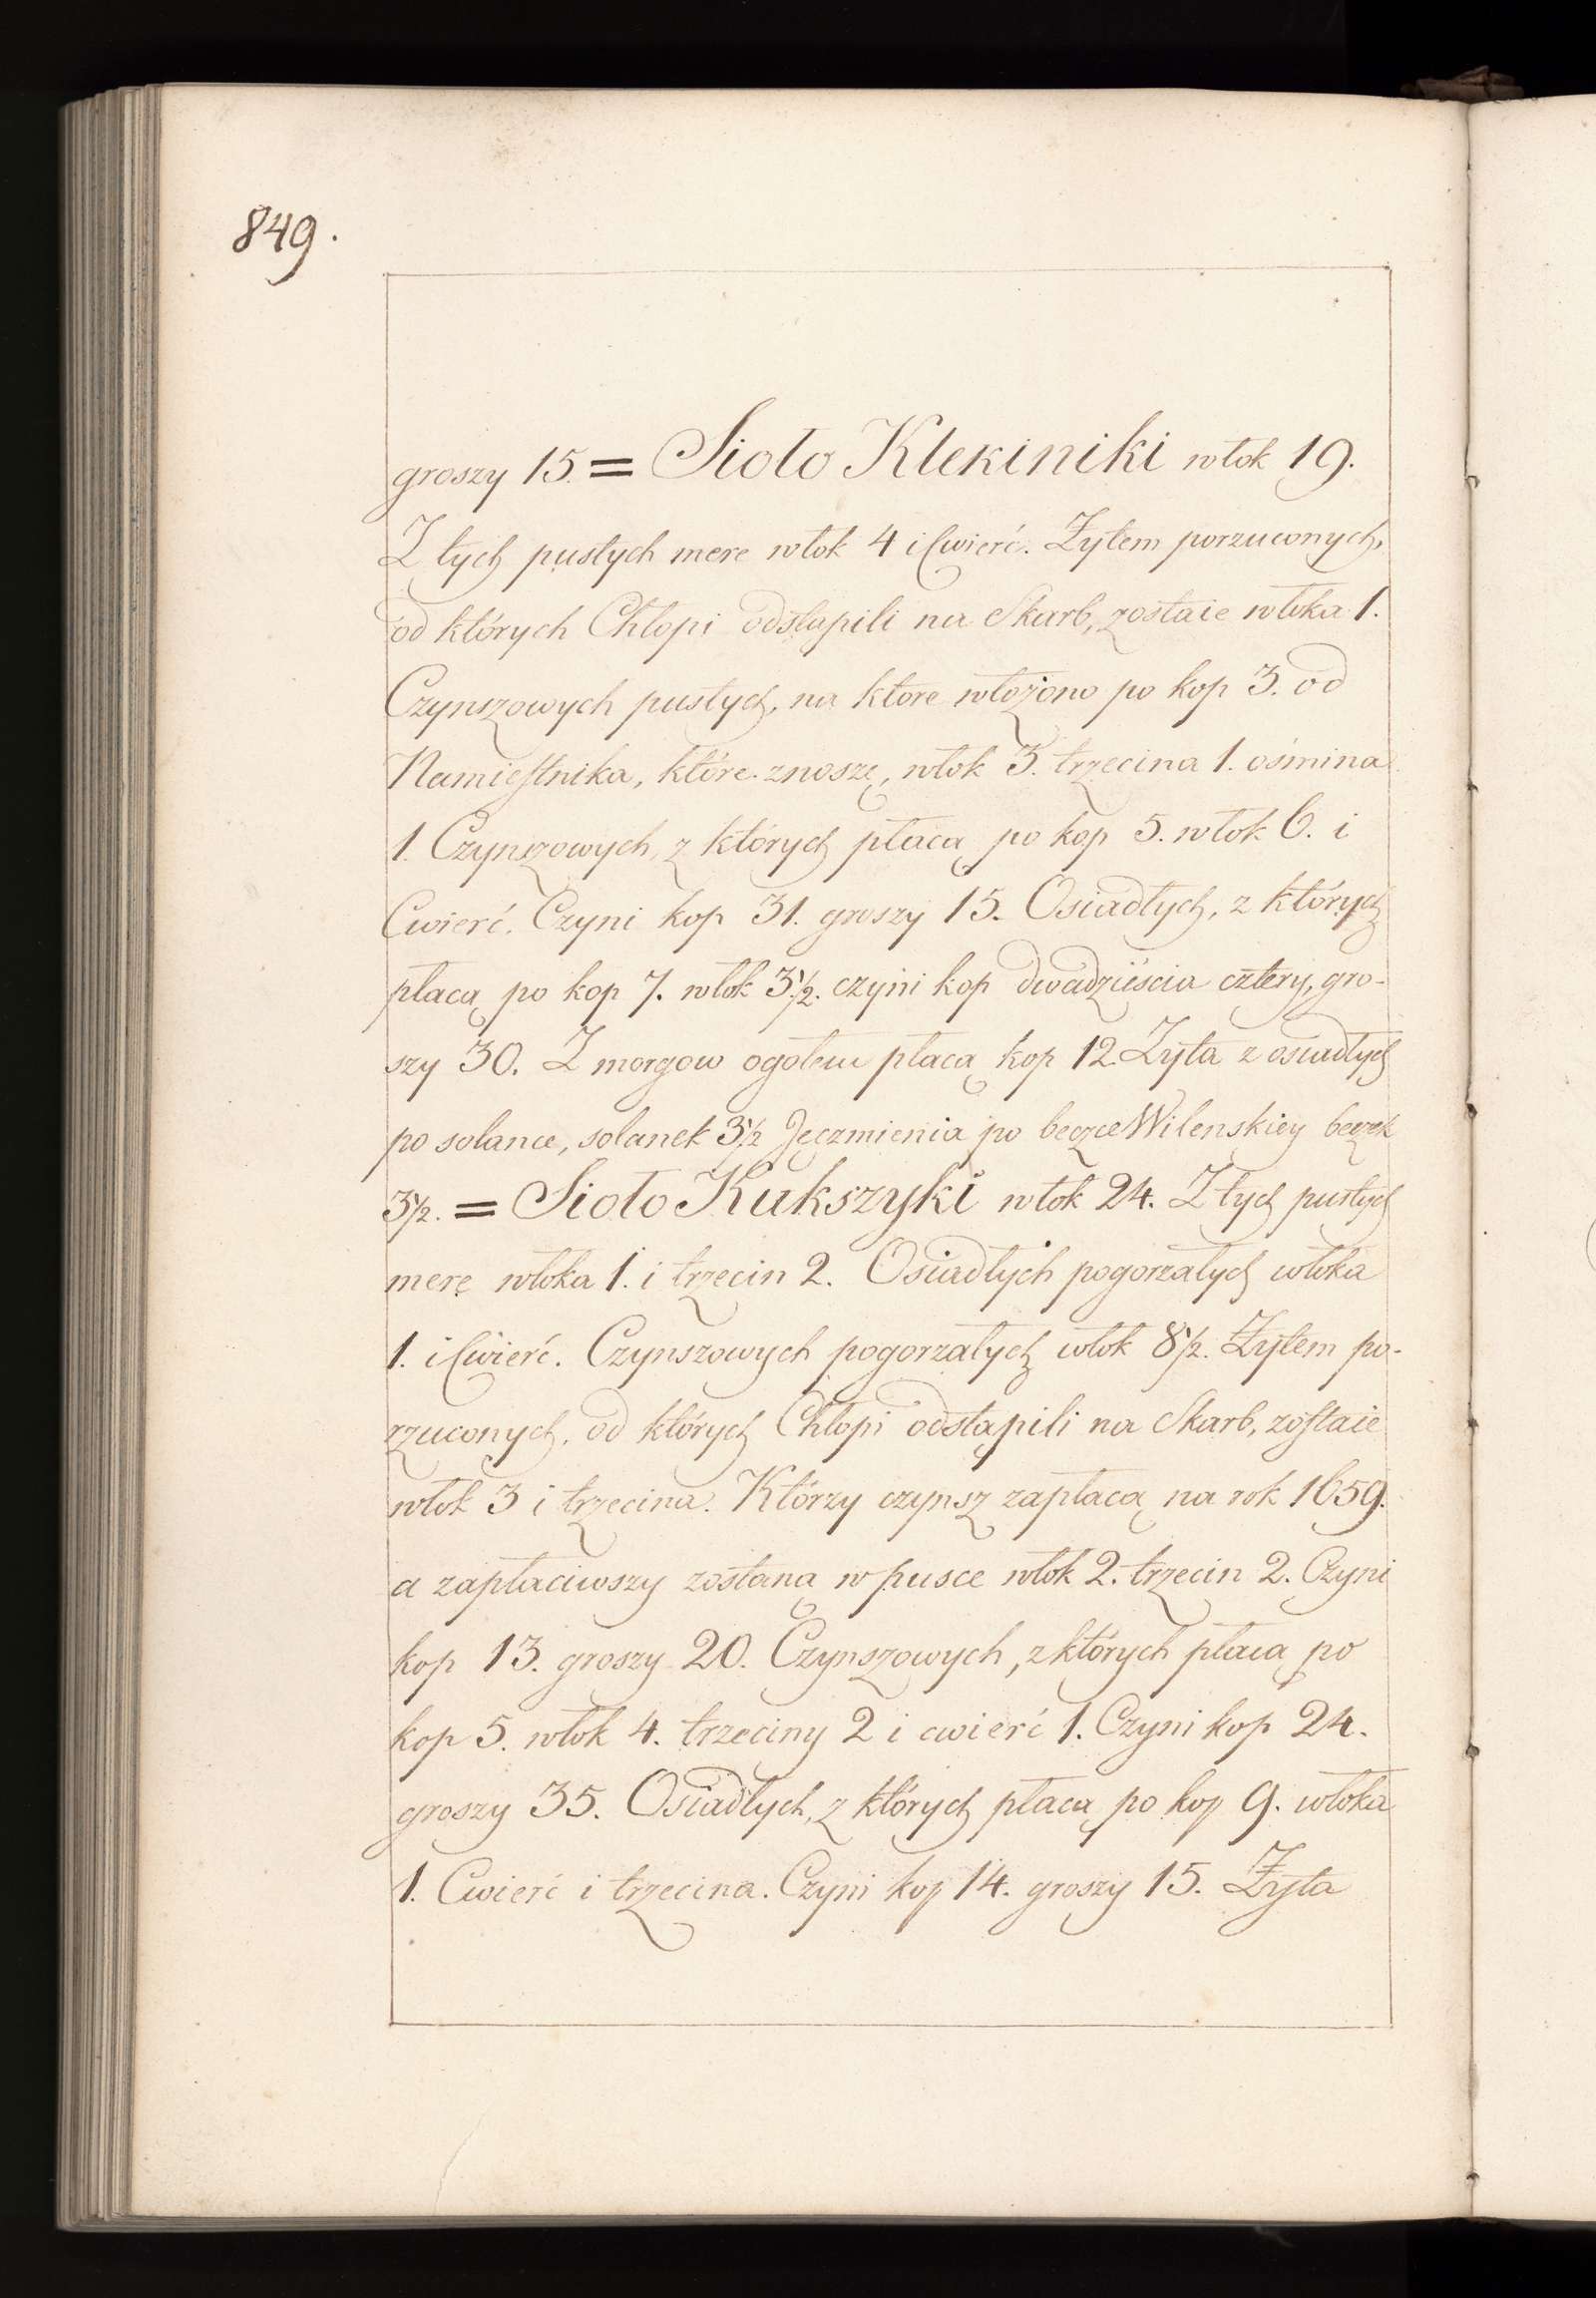 849.
groszy 15. = Sioło Klekiniki włok 19.
Z tych pustych mere włok 4 i Cwierć. Żytem porzuconych,
od których Chłopi odstąpili na Skarb, zostaie włoka 1.
Czynszowych pustych, na ktore włożono po kop 3. od
Namiestnika, które znoszę, włok 3. trzecina 1. ośmina
1. Czynszowych, z których płacą po kop 5. włok 6. i
Cwierć. Czyni kop 31. groszy 15. Osiadłych, z których
płacą po kop 7. włok 3½. czyni kop dwadzieścia cztery, gro-
szy 30. Z morgow ogołem płacą kop 12. Żyta z osiadłych
po solance, solanek 3½ Jęczmienia po beczce Wilenskiey beczek
3½. = Sioło Kukszyki włok 24. Z tych pustych
merę włoka 1. i trzecin 2. Osiadłych pogorzałych włoka
1. i Cwierć. Czynszowych pogorzałych włok 8½. Żytem po-
rzuconych, od których Chłopi odstąpili na Skarb, zostaie
włok 3 i trzecina. Którzy czynsz zapłacą na rok 1659.
a zapłaciwszy zostaną w pusce włok 2. trzecin 2. Czyni
kop 13. groszy 20. Czynszowych, z których płacą po
kop 5. włok 4. trzeciny 2 i cwierć 1. Czyni kop 24.
groszy 35. Osiadłych, z których płacą po kop 9. włoka
1. Cwierć i trzecina. Czyni kop 14. groszy 15. Żyta